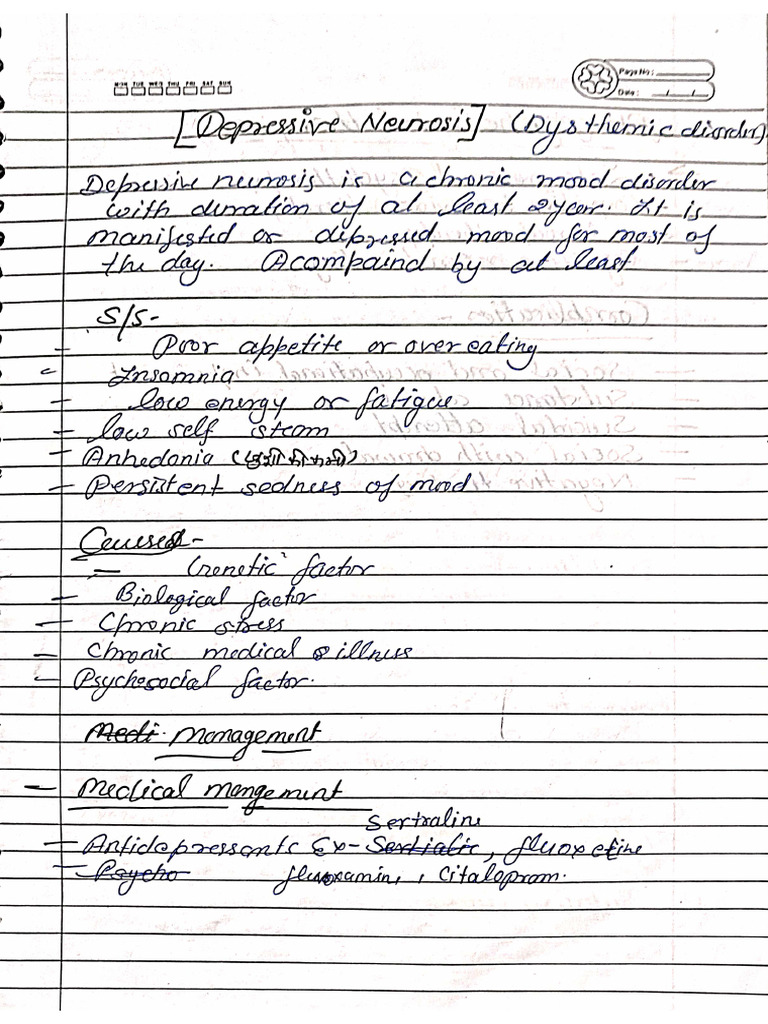 MON TUE WED THU FRI SAT SUN
Page No.:
Date: / /
[Depressive Neurosis] (Dysthemic disorder)
Depressive neurosis is a chronic mood disorder
with duration of at least 2 year. It is
manifested or depressed mood for most of
the day. Acompaind by at least
S/S-
- Poor appetite or over eating
- Insomnia
- low energy or fatigue
- low self isteam
- Anhedonia
- Persistent sedness of mood
Causes-
- Genetic factor
- Biological factor
- Chronic stress
- Chronic medical illness
- Psychosocial factor.
Medi. Management
- Medical mengement
Sertraline
- Antidepressants Ex- Sertialic, fluoxetine
- Psycho fluvoxamin, , Citaloprom.